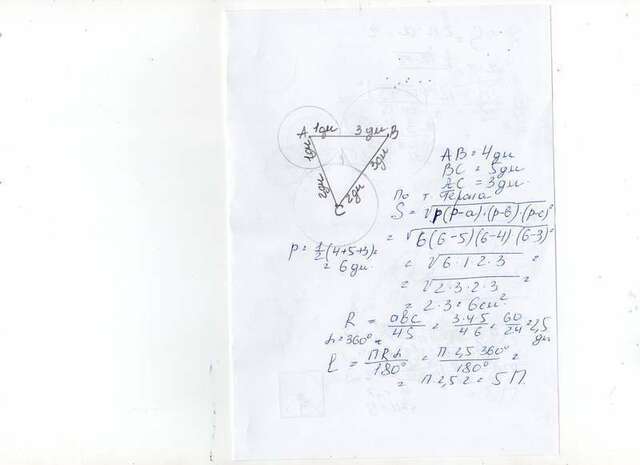 A 1дм 3дм B
1дм 3дм
2дм 2дм
C
AB = 4дм
BC = 5дм
AC = 3дм.
По т. Герона
S = √p(p-a)·(p-b)·(p-c) =
= √6(6-5)(6-4)(6-3) =
P = 1/2(4+5+3) =
= 6дм.
= √6·1·2·3 =
= √2·3·2·3 =
= 2·3 = 6см²
R = abc/4S = 3·4·5/4·6 = 60/24 = 2,5 дм
α = 360°
ℓ = ПRα/180° = П·2,5·360°/180° =
= П·2,5·2 = 5П.